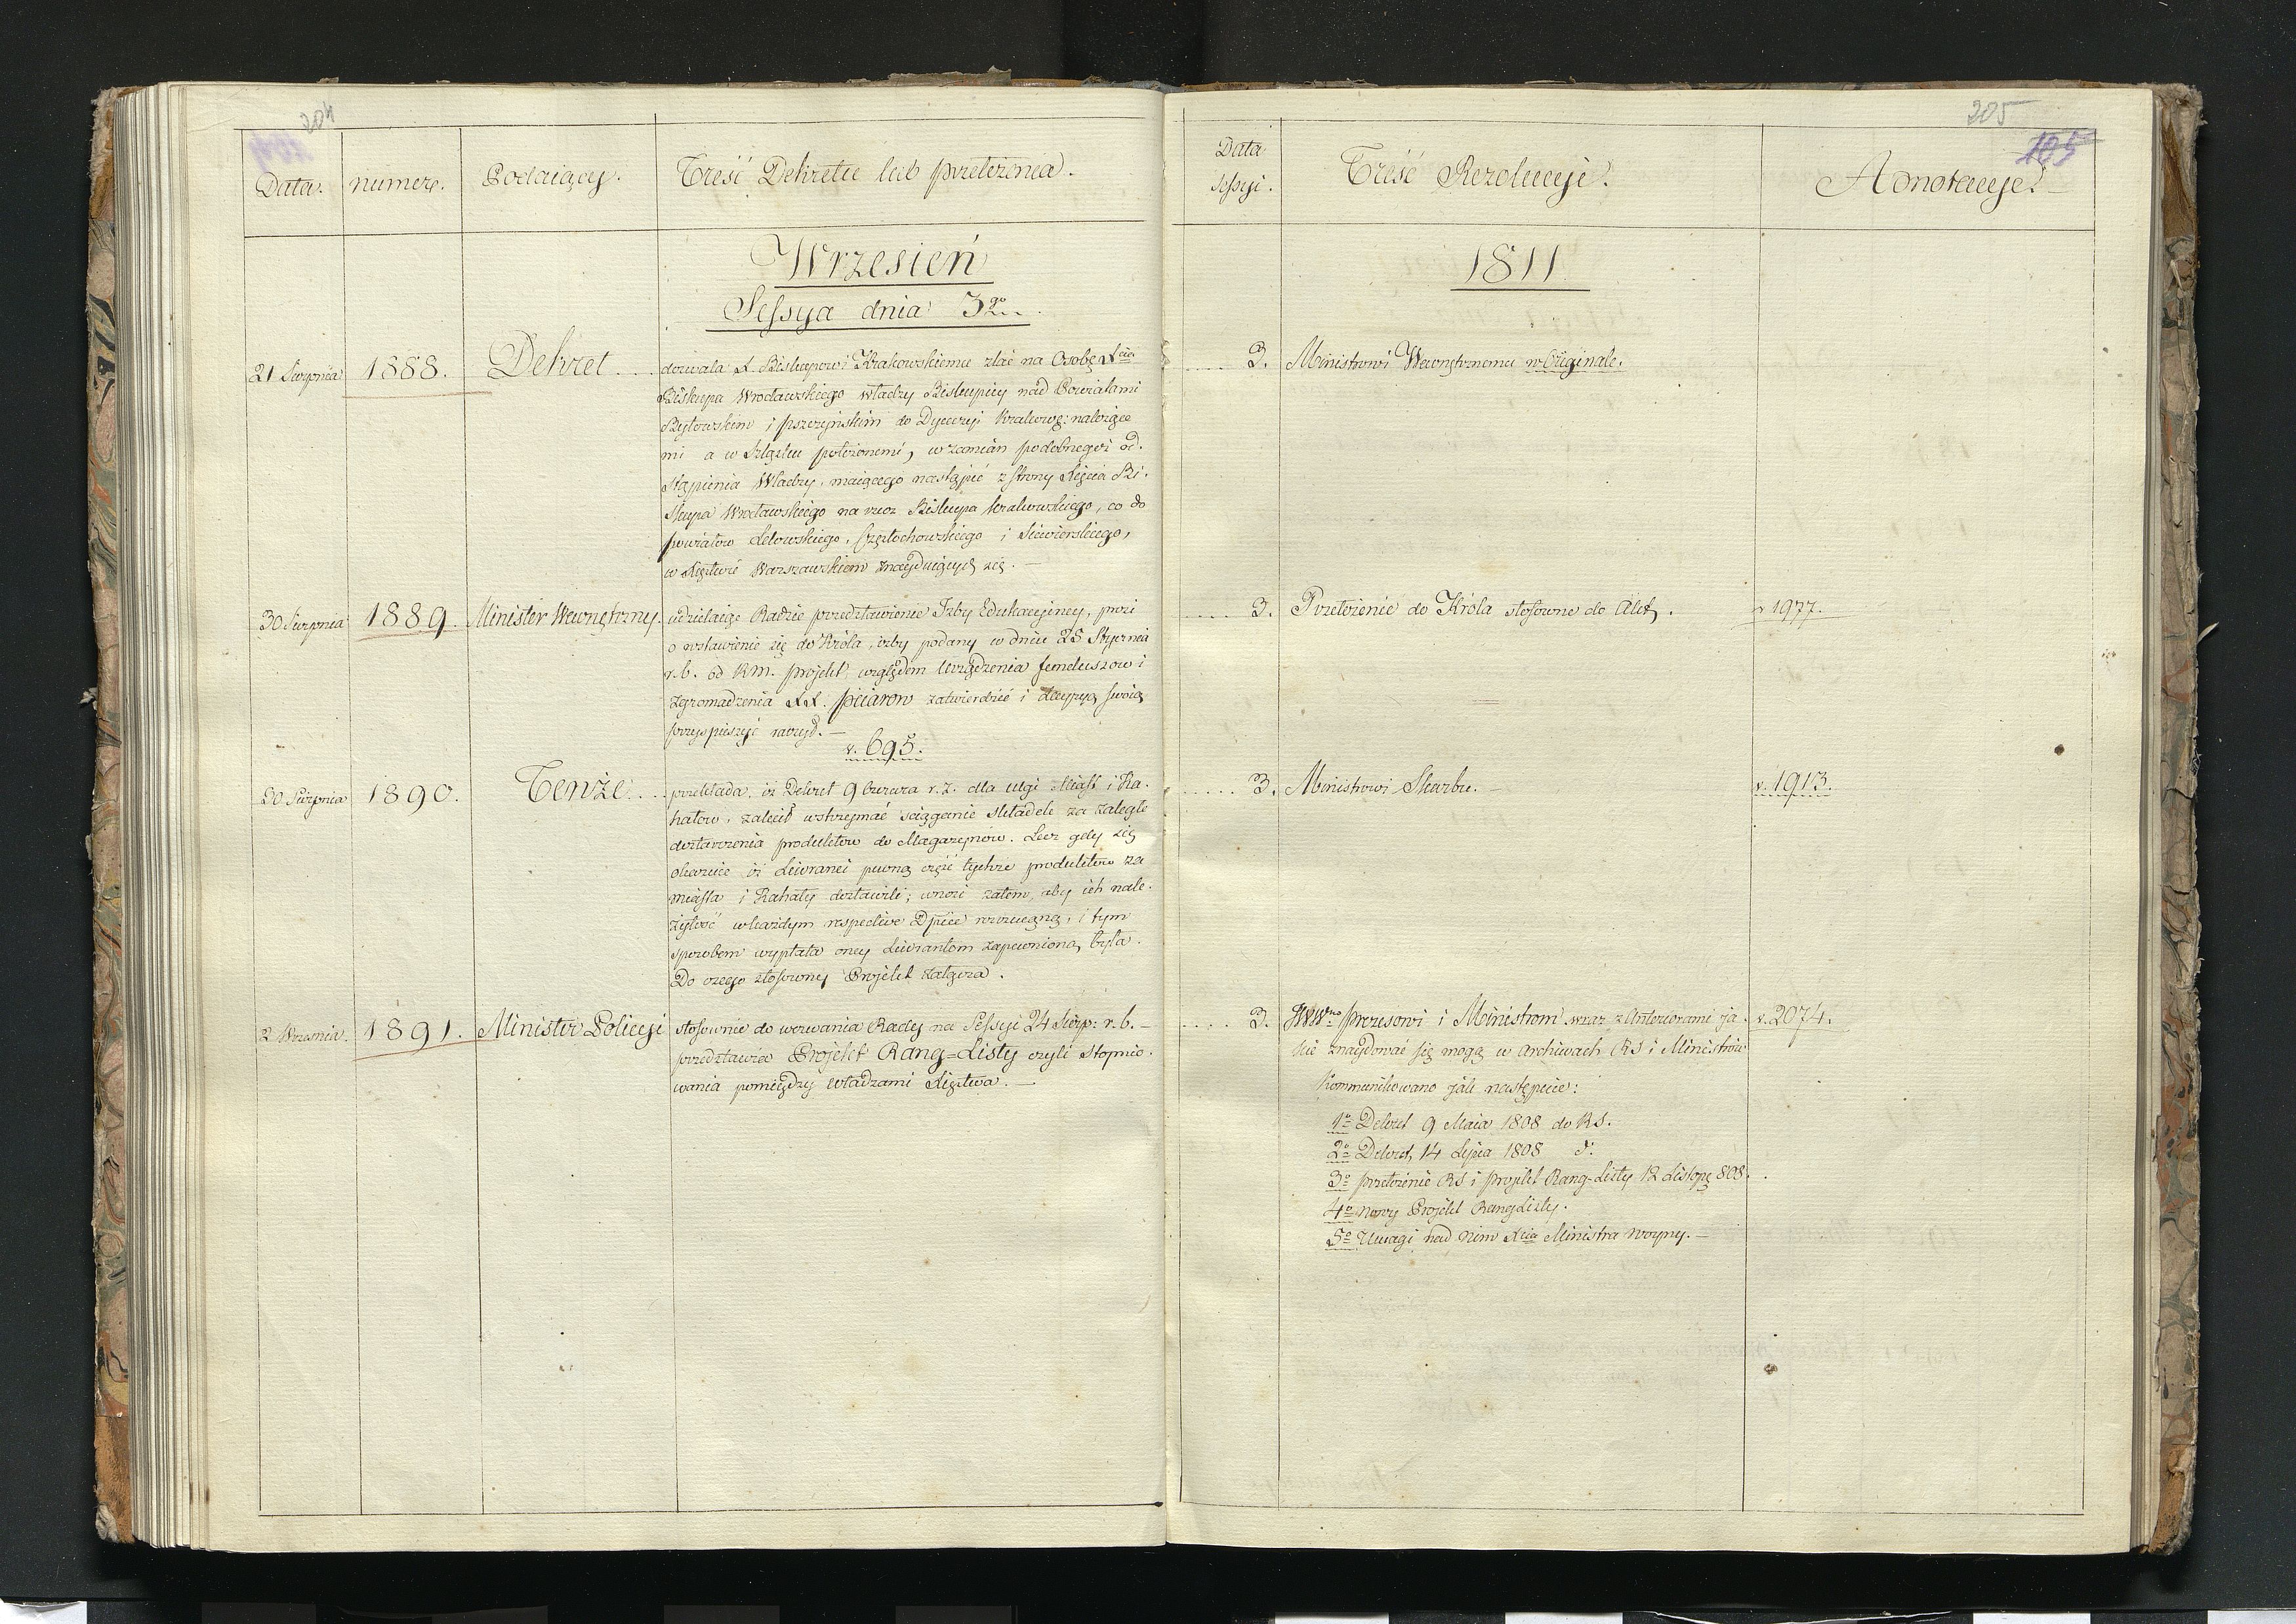 204
Data. numer. Podaiący. Treść Dekretu lub przełożenia.
Wrzesień
Sessya dnia 3go
21 Sierpnia 1888. Dekret .... dozwala X. Biskupowi Krakowskiemu zlać na Osobę Xcia
Biskupa Wrocławskiego władzy Biskupiey nad Powiatami
Bytowskim i pszczyńskim do Dyecezyi Krakowę: należące
mi a w Szląsku położonemi, w zamian podobnegoż od-
stąpienia Władzy, maiącego nastąpić z strony Xięcia Bi-
skupa Wrocławskiego na rzecz Biskupa krakowskiego, co do
powiatów Lelowskiego, Częstochowskiego i Siewierskiego,
w Xięztwie Warszawskiem znayduiących się. —
30 Sierpnia 1889. Minister Wewnętrzny. udzielaiąc Radzie przedstawienie Izby Edukacyiney, prosi
o wstawienie się do Króla, izby podany w dniu 25 Stycznia
r. b. od RM. projekt, względem Urządzenia funduszow i
zgromadzenia XX. piiarow zatwierdzić i decyzyą swoią
przyspieszyć raczył. —
v. 695.
30 Sierpnia 1890. Tenże .... przekłada, iż Dekret 9 Czerwca r. z. dla ulgi Miast i Ka-
hałow, zalecił wstrzymać sciąganie składek za zaległe
dostarczenia produktow do Magazynów. Lecz gdy się
okazuie iż Liwranci pewną część tychże produktow za
miasta i Kahały dostawili; wnosi zatem, aby ich nale-
żytość w każdym respective Dpcie , i tym
sposobem wypłata oney Liwrantom zapewniona była.
Do czego stosowny Projekt załącza.
2 Wrzesnia. 1891. Minister Policyi stosownie do wezwania Rady na Sessyi 24 Sierp: r. b. —
przedstawia Projekt Rang-Listy czyli stopnio-
wania pomiędzy władzami Xięztwa. —
205
105
Data Sessyi. Treść Rezolucyi. Adnotacye.
1811
.... 3. Ministrowi Wewnętrznemu w Originale.
.... 3. Przełożenie do Króla stosowne do Alct. v 1977.
.... 3. Ministrowi Skarbu. — v. 1913.
.... 3. WWmo prezesowi i Ministrom wraz z Anteriorami ja- v. 2074.
kie znaydować się mogą w Archiwach RS i Ministrów
Kommunikowano jak następuie:
1o Dekret 9 Maia 1808 do RS.
2o Dekret 14 Lipca 1808 d:
3o przełożenie RS i projekt Rang-Listy 12 Listop 808.
4o nowy Projekt RangListy.
5o Uwagi nad nim Xcia Ministra woyny. —